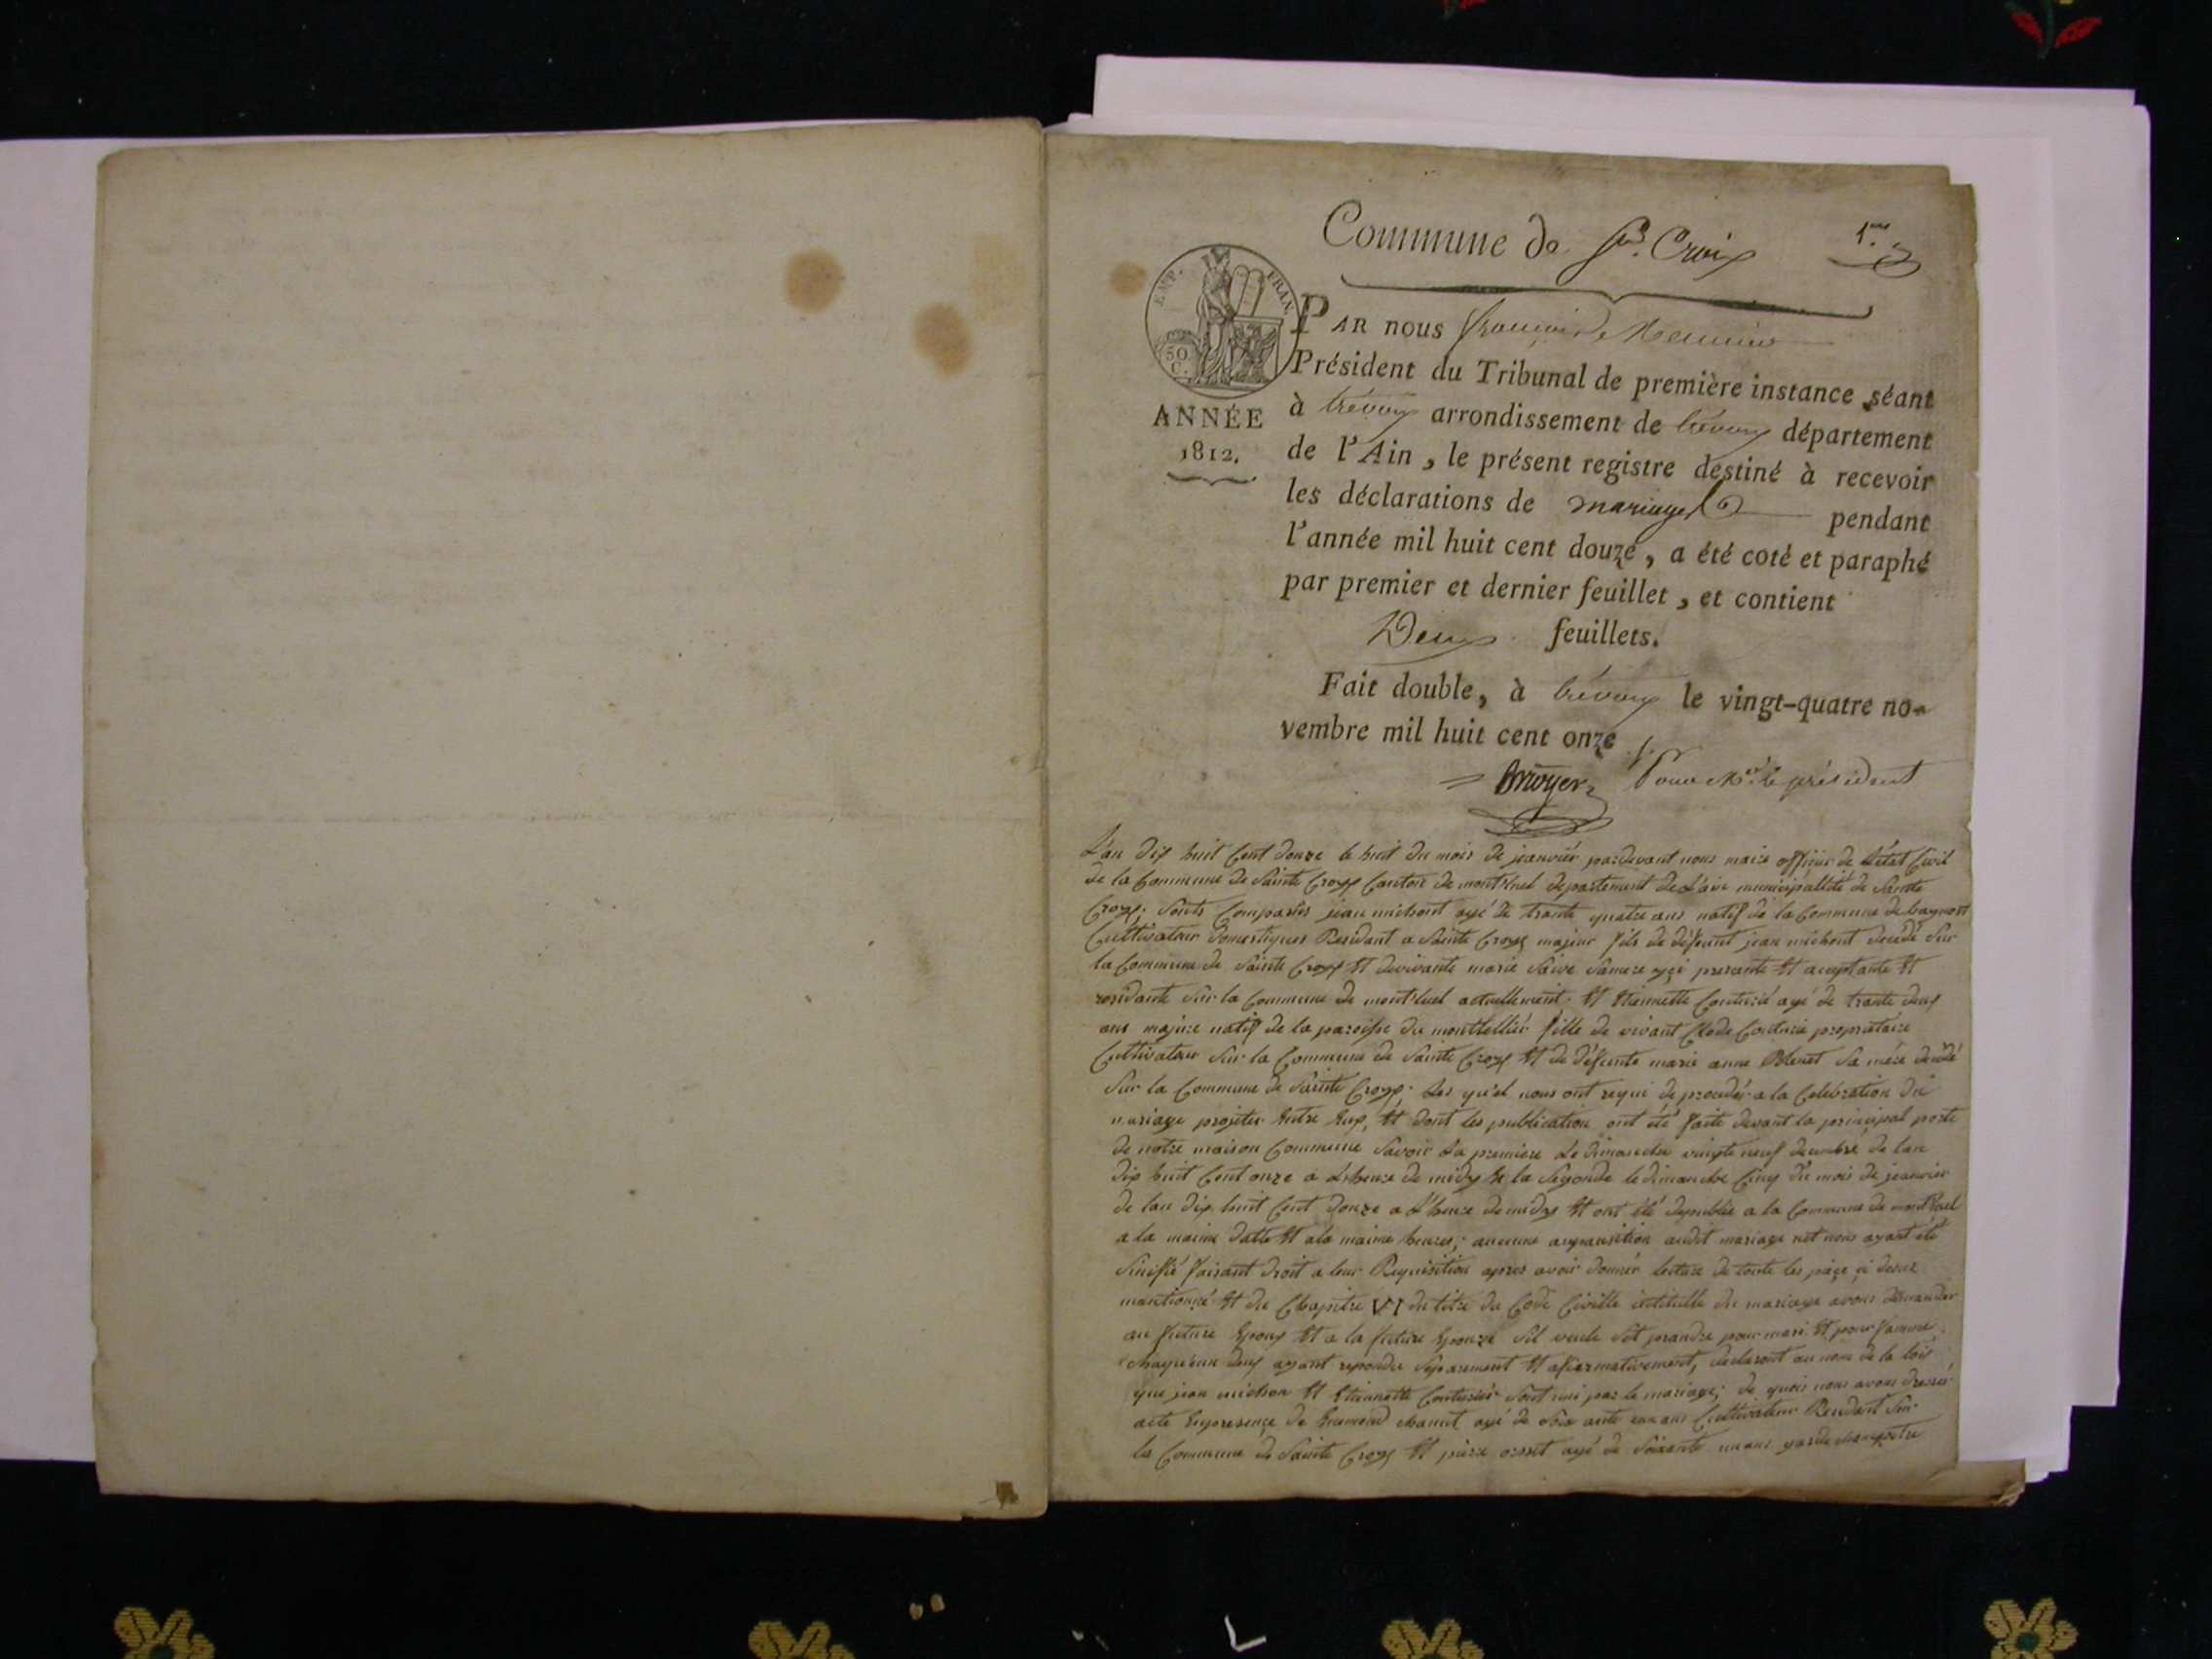 Commune de Ste. Croix
1er.
EMP. FRAN.
50 C.
ANNÉE
1812.
PAR nous françois
Président du Tribunal de première instance séant
à trévoux arrondissement de trévoux département
de l'Ain, le présent registre destiné à recevoir
les déclarations de mariages pendant
l'année mil huit cent douze, a été coté et paraphé
par premier et dernier feuillet, et contient
Deux feuillets.
Fait double, à trévoux le vingt-quatre no-
vembre mil huit cent onze
Pour Mr. le président
L'an dix huit Cent douze le huit du mois de jeanvier pardevant nous maire officier de L'état Civil
de la Commune de Sainte Croyx Canton de montluel departement de L'ain municipallité de Sainte
Croyx; Sonts Comparûs jean michont agé de trante quatre ans natif de la Commune de
Cultivateur domestiques Residant a Sainte Croyx majeur fils de défeunt jean michont decédé Sur
la Commune de Sainte Croyx Et devivante marie Saive Samere presente Et aceptante Et
residante Sur la Commune de montluel actuellement. Et Etiennette Couturié agé de trante deux
ans majure natif de la paroisse du monthellier fille de vivant Clode Couturié propriétaire
Cultivateur Sur la Commune de Sainte Croyx Et de défeunte marie anne Blenet Sa mére decédé
Sur la Commune de Sainte Croyx; Les qu'el nous ont requi de procedér a la Celebration du
mariage projeter Entre Eux, Et dont les publication ont été faite devant la principal porte
de notre maison Commune Savoir La premiere Le dimanche vingte neuf decembre de lan
dix huit Cent onze a Lheure de midy Et la Segonde le dimanche Cinq du mois de jeanvier
de lan dix huit Cent douze a L'heure demidy Et ont été depublié a la Commune de montluel
a la maime datte Et ala maime heures; aucune audit mariage net nous ayant été
Sinifié faisant droit a leur Requisition apres avoir donnér lecture de toute les piece ci desus
mantionné Et du Chapitre VI du titre du Code Civille intitulle du mariage avons demander
au future Epoux Et a la future Epouze Sil veule Set prandre pour mari Et pour famme
Chaqu'eun deux ayant repondu Separement Et afiermativement, declaront au nom de la lois
que jean michon Et Etiennette Couturier Sont uni par le mariage; de quois nous avons dressér
acte Enpresençe de hanet agé de Soix ante ans Cultivateur Residant Sur
la Commune de Sainte Croyx Et piere agé de Soixante ans garde champetre